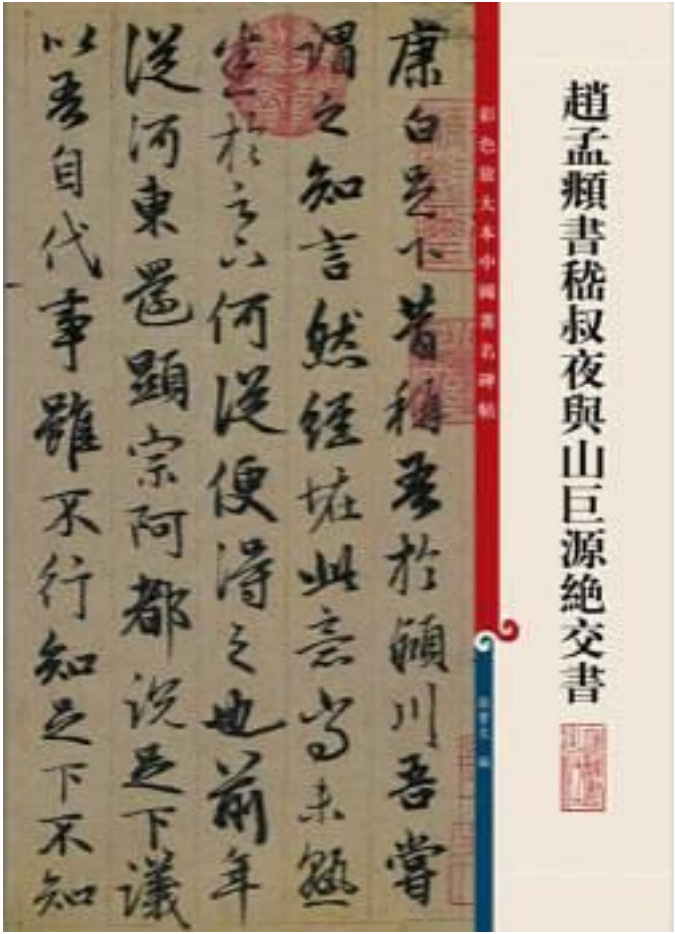 趙孟頫書嵇叔夜與山巨源絶交書
彩色放大本中國著名碑帖
孫寶文 編
康白足下昔稱吾於潁川吾嘗
謂之知言然經恠此意尚未熟
悉於足下何從便得之也前年
從河東還顯宗阿都說足下議
以吾自代事雖不行知足下不知